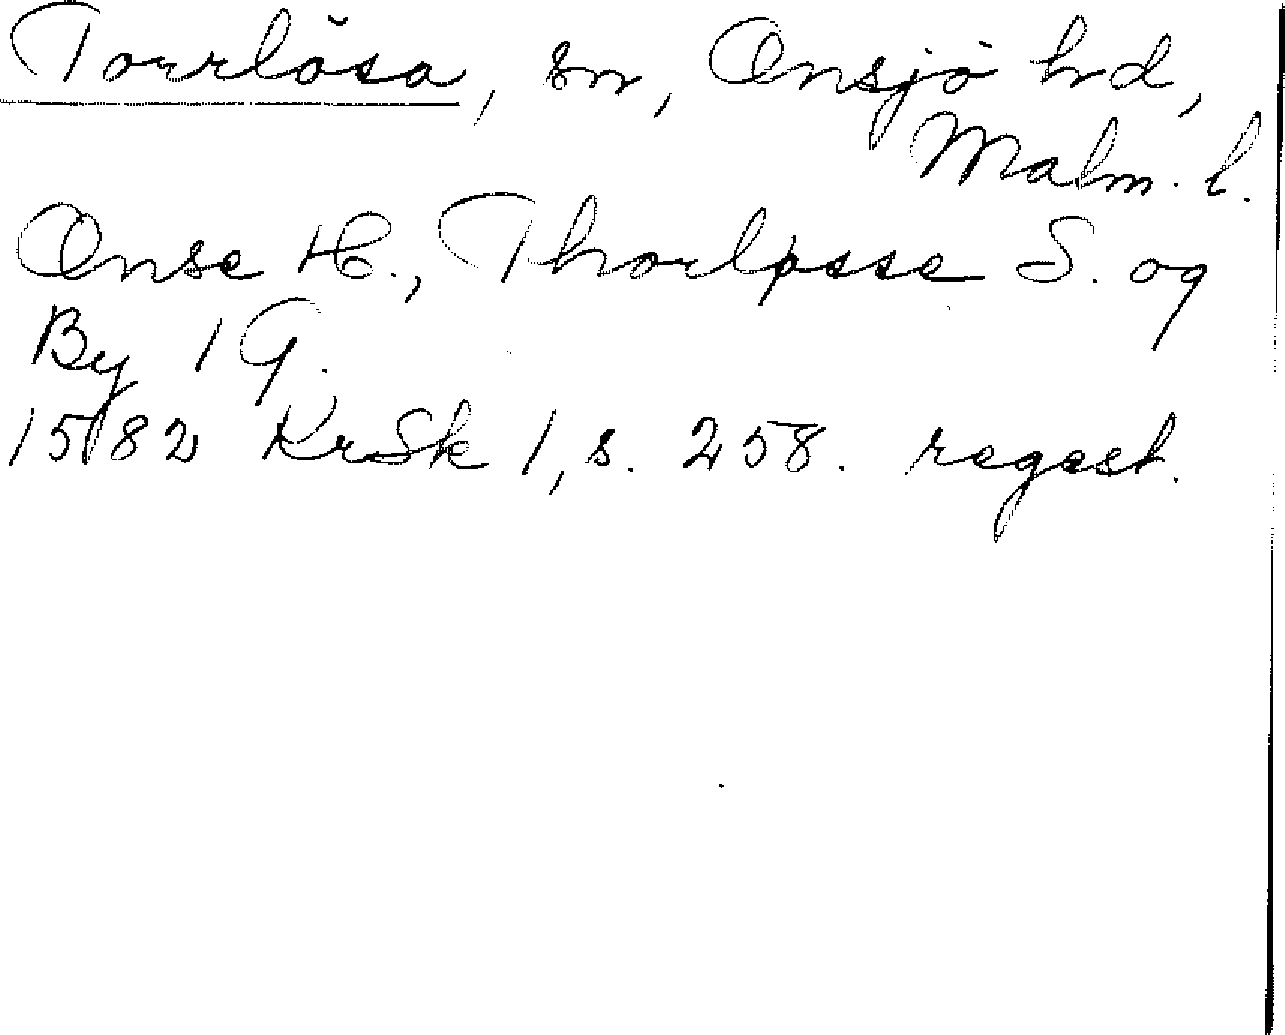 Torrlösa, sn, Onsjö hd,
Malm. l.
Onse H., Thorløsse S. og
By 1 G.
1582 KrSk 1, s. 258. regest.